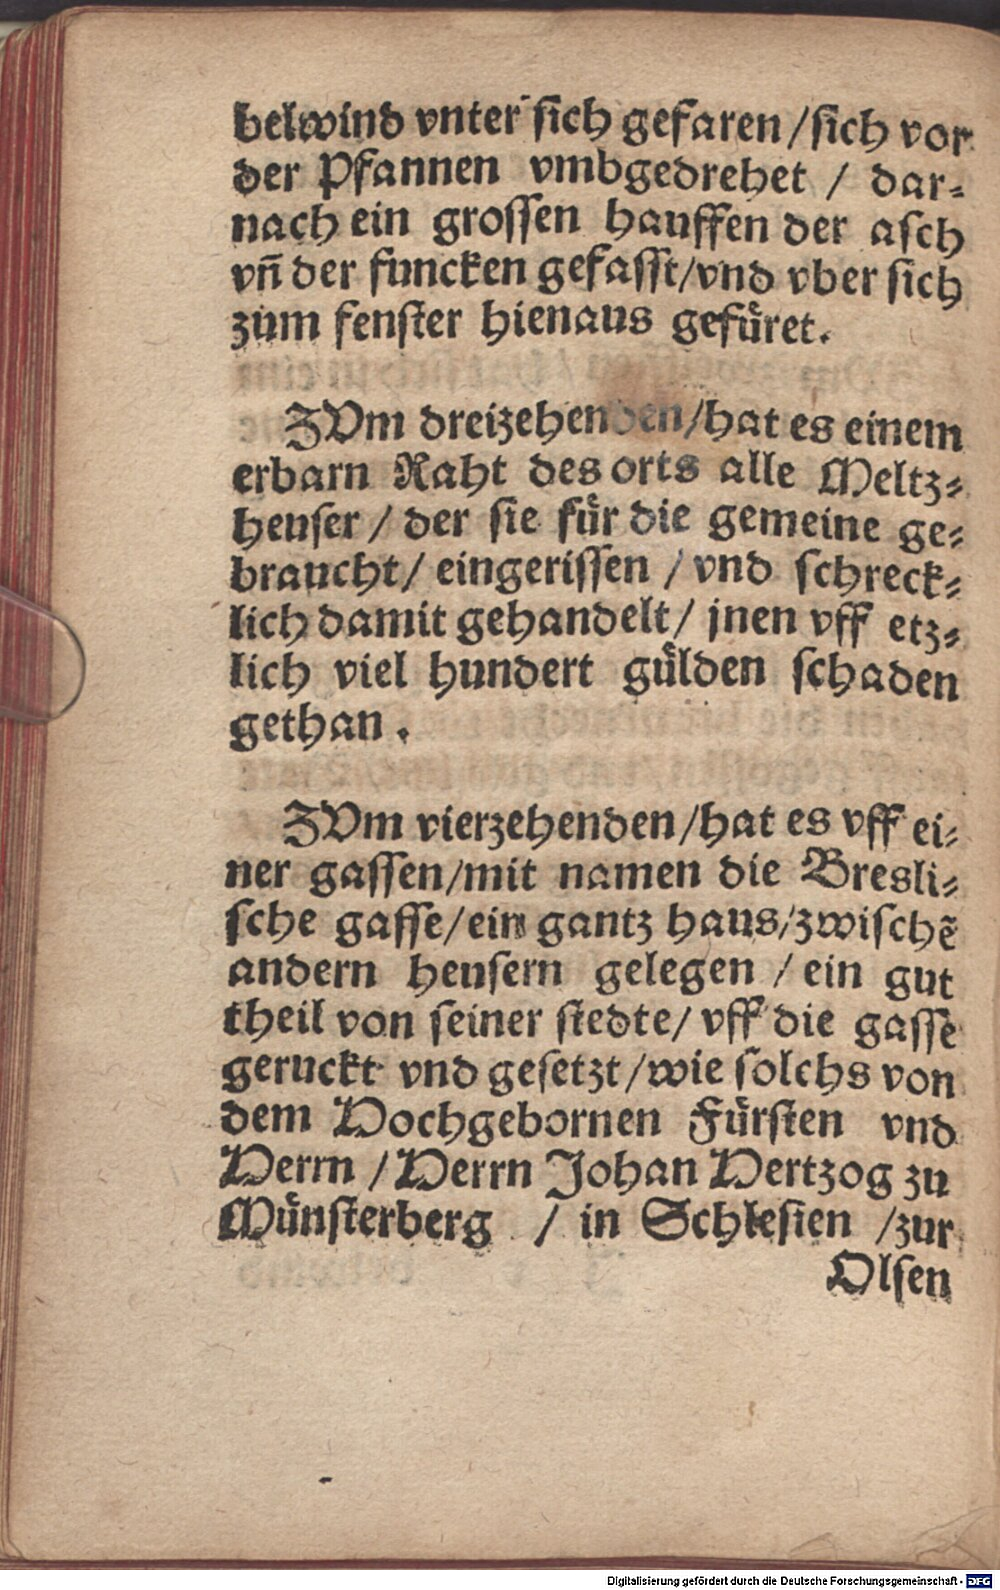 belwind vnter sich gefaren / sich vor
der Pfannen vmbgedrehet / dar⸗
nach ein grossen hauffen der asch
vñ der funcken gefasst/vnd vber sich
zum fenster hienaus gefüret.
ZVm dreizehenden/hat es einem
erbarn Raht des orts alle Meltz⸗
heuser / der sie für die gemeine ge⸗
braucht/ eingerissen / vnd schreck⸗
lich damit gehandelt/ jnen vff etz⸗
lich viel hundert gülden schaden
gethan .
ZVm vierzehenden/hat es vff ei⸗
ner gassen/mit namen die Bresli⸗
sche gasse/ein gantz haus/zwischẽ
andern heusern gelegen / ein gut
theil von seiner stedte/ vff die gasse
geruckt vnd gesetzt/wie solchs von
dem Hochgebornen Fürsten vnd
Herrn / Herrn Johan Hertzog zu
Münsterberg / in Schlesien /zur
Olsen
Digitalisierung gefördert durch die Deutsche Forschungsgemeinschaft - DFG